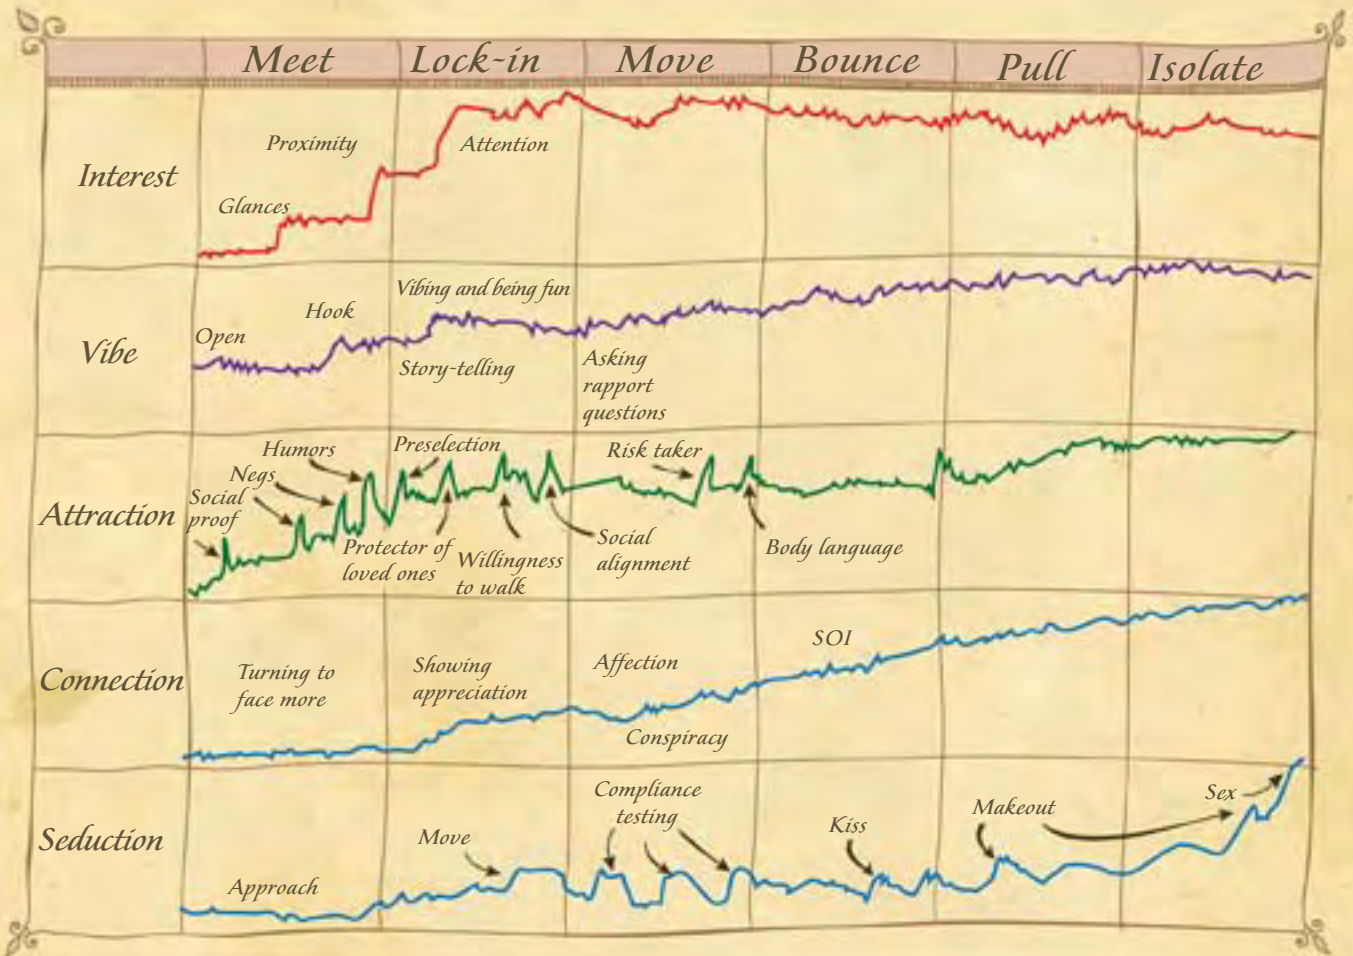 Meet Lock-in Move Bounce Pull Isolate
Interest
Glances
Proximity
Attention
Vibe
Open
Hook
Vibing and being fun
Story-telling
Asking
rapport
questions
Attraction
Social
proof
Negs
Humors
Preselection
Protector of
loved ones
Willingness
to walk
Social
alignment
Risk taker
Body language
Connection
Turning to
face more
Showing
appreciation
Affection
Conspiracy
SOI
Seduction
Approach
Move
Compliance
testing
Kiss
Makeout
Sex